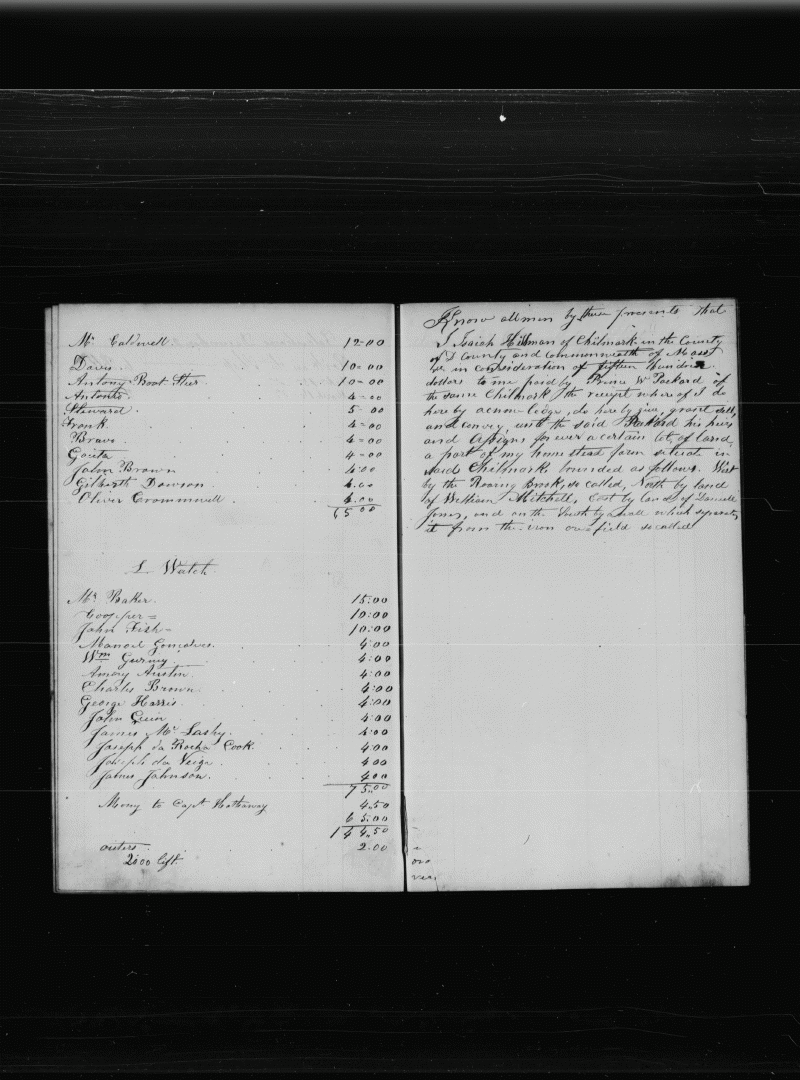 Mr Caldwell. 12=00
Davis. 10=00
Antony Boat Steer. 10=00
Antonio. 4=00
Steward. 5=00
Frank. 4=00
Bravo. 4=00
Goieta 4=00
Jason Brown 4:00
Gilberth Dawson. 4.00
Oliver Crommwell. 4.00
65 00
L. Watch
Mr Baker. 15:00
Cooper = 10:00
John Fish = 10:00
Manoel Gonsalves. 4:00
Wm Gurney 4:00
Amory Austin. 4:00
Charles Brown. 4:00
George Harris. 4:00
John Guin 4:00
James Mc Lashy. 4:00
Joseph da Rocha Cook. 4:00
Joseph da Veiga 4 00
James Johnson. 4 00
75.00
Money to Capt Hathaway 4.50
65.00
144.50
2.00
2000 left.
Know all men by these presents that
I Isaiah Hillman of Chilmark in the County
of D County and Commonwealth of Mass
in consideration of fifteen hundred
dollars to me paid by Prince W Packard of
the same Chilmark the receipt where of I do
here by acnow ledge, do here by give, grant sell,
and convey unto the said Packard his heirs
and assigns for ever a certain lot of land,
a part of my home stead farm situate in
said Chilmark bounded as follows. West
by the Roaring Brook, so called, North by land
of William Mitchell, East by land of Daniell
Jones, and on the South by wall which separates
it from the iron ore field so called